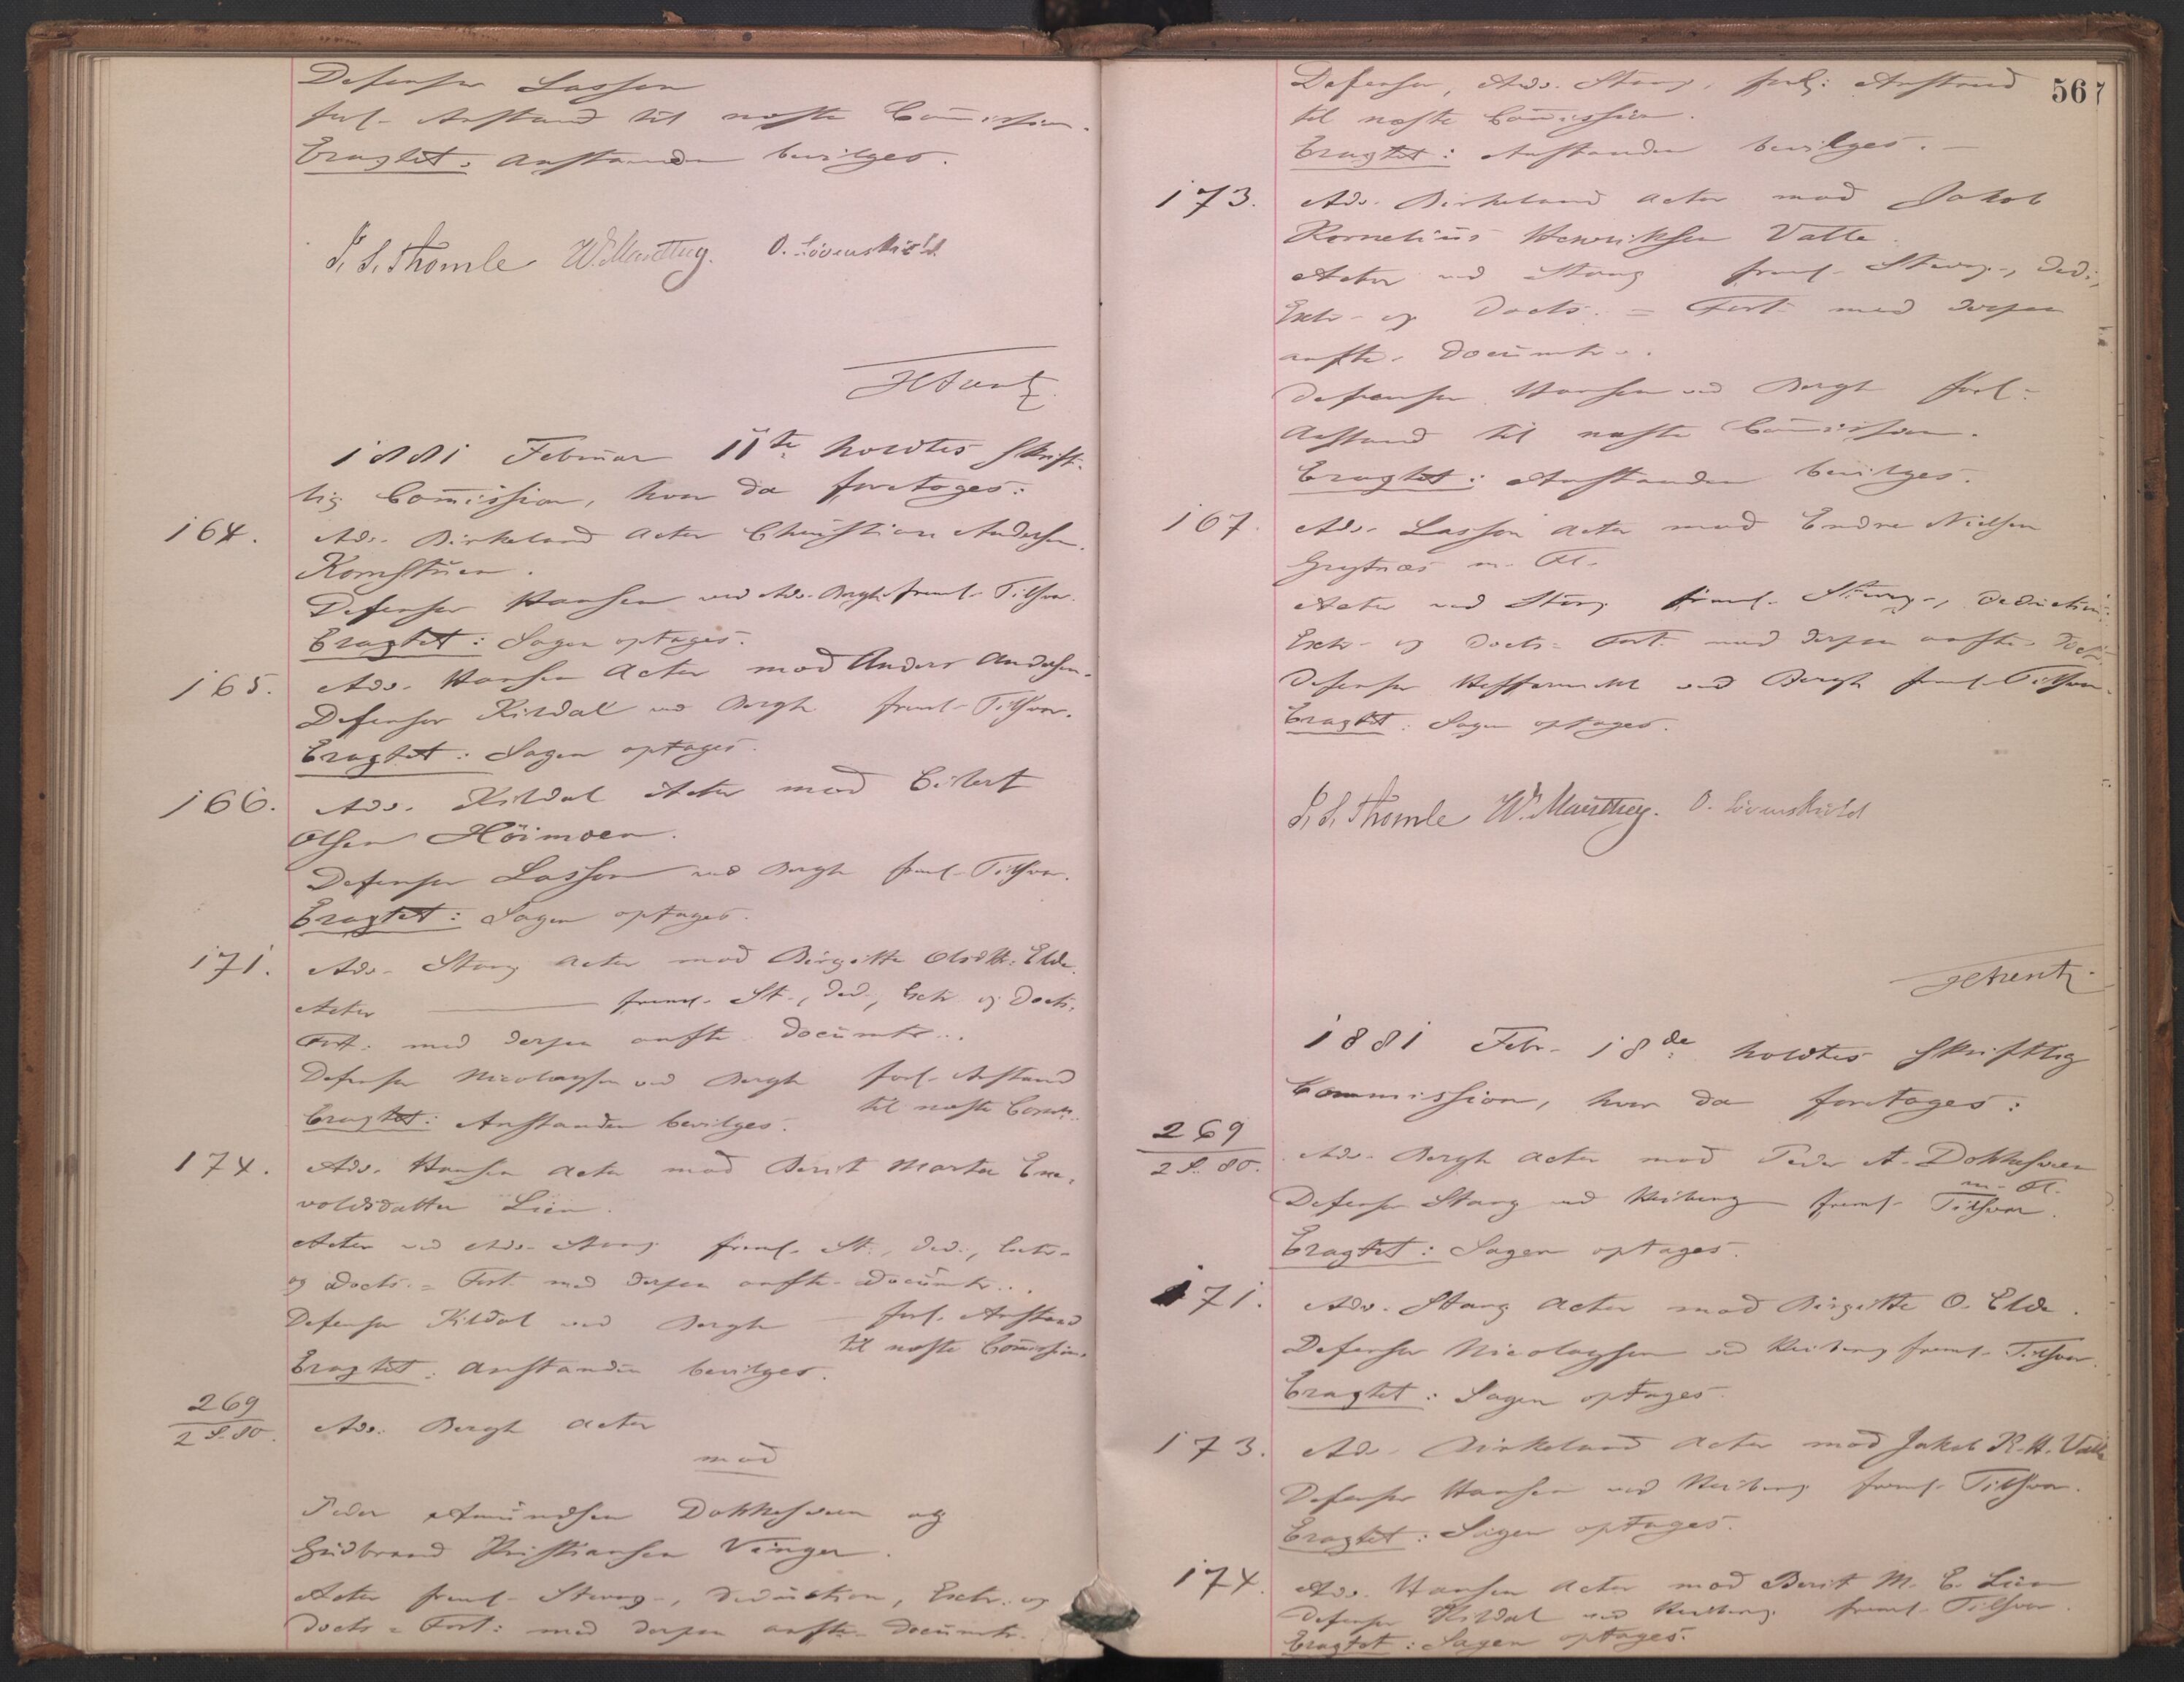 Defensor Lasson
forl. Anstand til næste Com̅ission.
Eragtet: Anstanden bevilges.
I. S. Thomle W. Mariboe. O. Løvenskiold
H Arentz
1881 Februar 11te holdtes skrift-
lig Com̅ission, hvor da foretoges:
164. Adv. Birkeland Actor Christian Andersen
Kornstuen.
Defensor Hansen ved Adv. Bergh freml. Tilsvar.
Eragtet: Sagen optages.
165. Adv. Hansen Actor mod Anders Andersen.
Defensor Kildal ved Bergh freml. Tilsvar.
Eragtet: Sagen optages.
166. Adv. Kildal Actor mod Eilert
Olsen Höimoen.
Defensor Lasson ved Bergh freml. Tilsvar.
Eragtet: Sagen optages.
171. Adv. Stang Actor mod Birgitte Olsdtr. Elde.
Actor freml. St., Ded., Extr. og Docts.
Fort. med derpaa anfte Documtr..
Defensor Nicolaysen ved Bergh forl. Anstand
til næste Comm.
Eragtet: Anstanden bevilges.
174. Adv. Hansen Actor mod Berit Marta Ene-
voldsdatter Lien.
Actor ved Adv. Stang freml. St., Ded., Extr.
og Docts. = Fort. med derpaa anfte Documtr..
Defensor Kildal ved Bergh forl. Anstand
til næste Com̅ission.
Eragtet: Anstanden bevilges.
269
2 S. 80. Adv. Bergh Actor
mod
Peder Amundsen Dokkesveen og
Gudbrand Kristiansen Vinger.
Actor freml. Stevng., Deduction, Extr. og
Docts = Fort: med derpaa anfte Documtr.
567
Defensor, Adv. Stang, forl: Anstand
til næste Com̅ission.
Eragtet: Anstanden bevilges. —
173. Adv. Birkeland Actor mod Jakob
Kornelius Henriksen Valle.
Actor ved Stang freml. Stevng., Ded.,
Extr. og Docts. = Fort med derpaa
anfte. Documtr..
Defensor Hansen ved Bergh forl.
Anstand til næste Com̅ission.
Eragtet: Anstanden bevilges.
167. Adv. Lasson Actor mod Endre Nielsen
Grytnæs m. Fl.
Actor ved Stang freml. Stevng., Deduction,
Extr. og Docts = Fort. med derpaa anfte Doctr.
Defensor ved Bergh freml. Tilsvar.
Eragtet: Sagen optages.
I. S. Thomle W. Mariboe. O. Løvenskiold
H Arentz
1881 Febr. 18de holdtes skriftlig
Commission, hvor da foretoges:
269
2 S. 80. Adv. Bergh Actor mod Peder A. Dokkesveen
m. Fl.
Defensor Stang ved Heiberg freml. Tilsvar.
Eragtet: Sagen optages.
171. Adv. Stang Actor mod Birgitte O. Elde.
Defensor Nicolaysen ved Heiberg freml. Tilsvar.
Eragtet: Sagen optages.
173. Adv. Birkeland Actor mod Jakob K. H. Valle
Defensor Hansen ved Heiberg freml. Tilsvar.
Eragtet: Sagen optages.
174. Adv. Hansen Actor mod Berit M. E. Lien
Defensor Kildal ved Heiberg freml. Tilsvar.
Eragtet: Sagen optages.